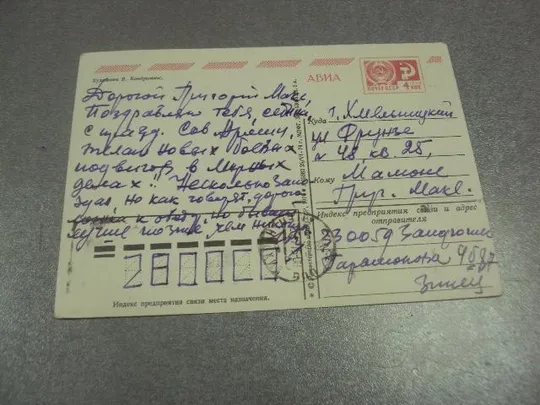 Художник
АВИА
ПОЧТА СССР
4 коп
Дорогой Григорий Макс,
Поздравляю тебя, семью
с празд. Сов Армии,
желаю новых боевых
подвигов, в мирных
делах!! Несколько запо
здал, но как говорят, дорого
к обеду, но бывает
лучше позже, чем никогда
Куда г. Хмельницкий
ул Фрунзе
48 кв. 25,
Кому Мамоне
Григ. Макс.
Индекс предприятия связи и адрес
отправителя
330059 Запорожье
Парамонова
Индекс предприятия связи места назначения.